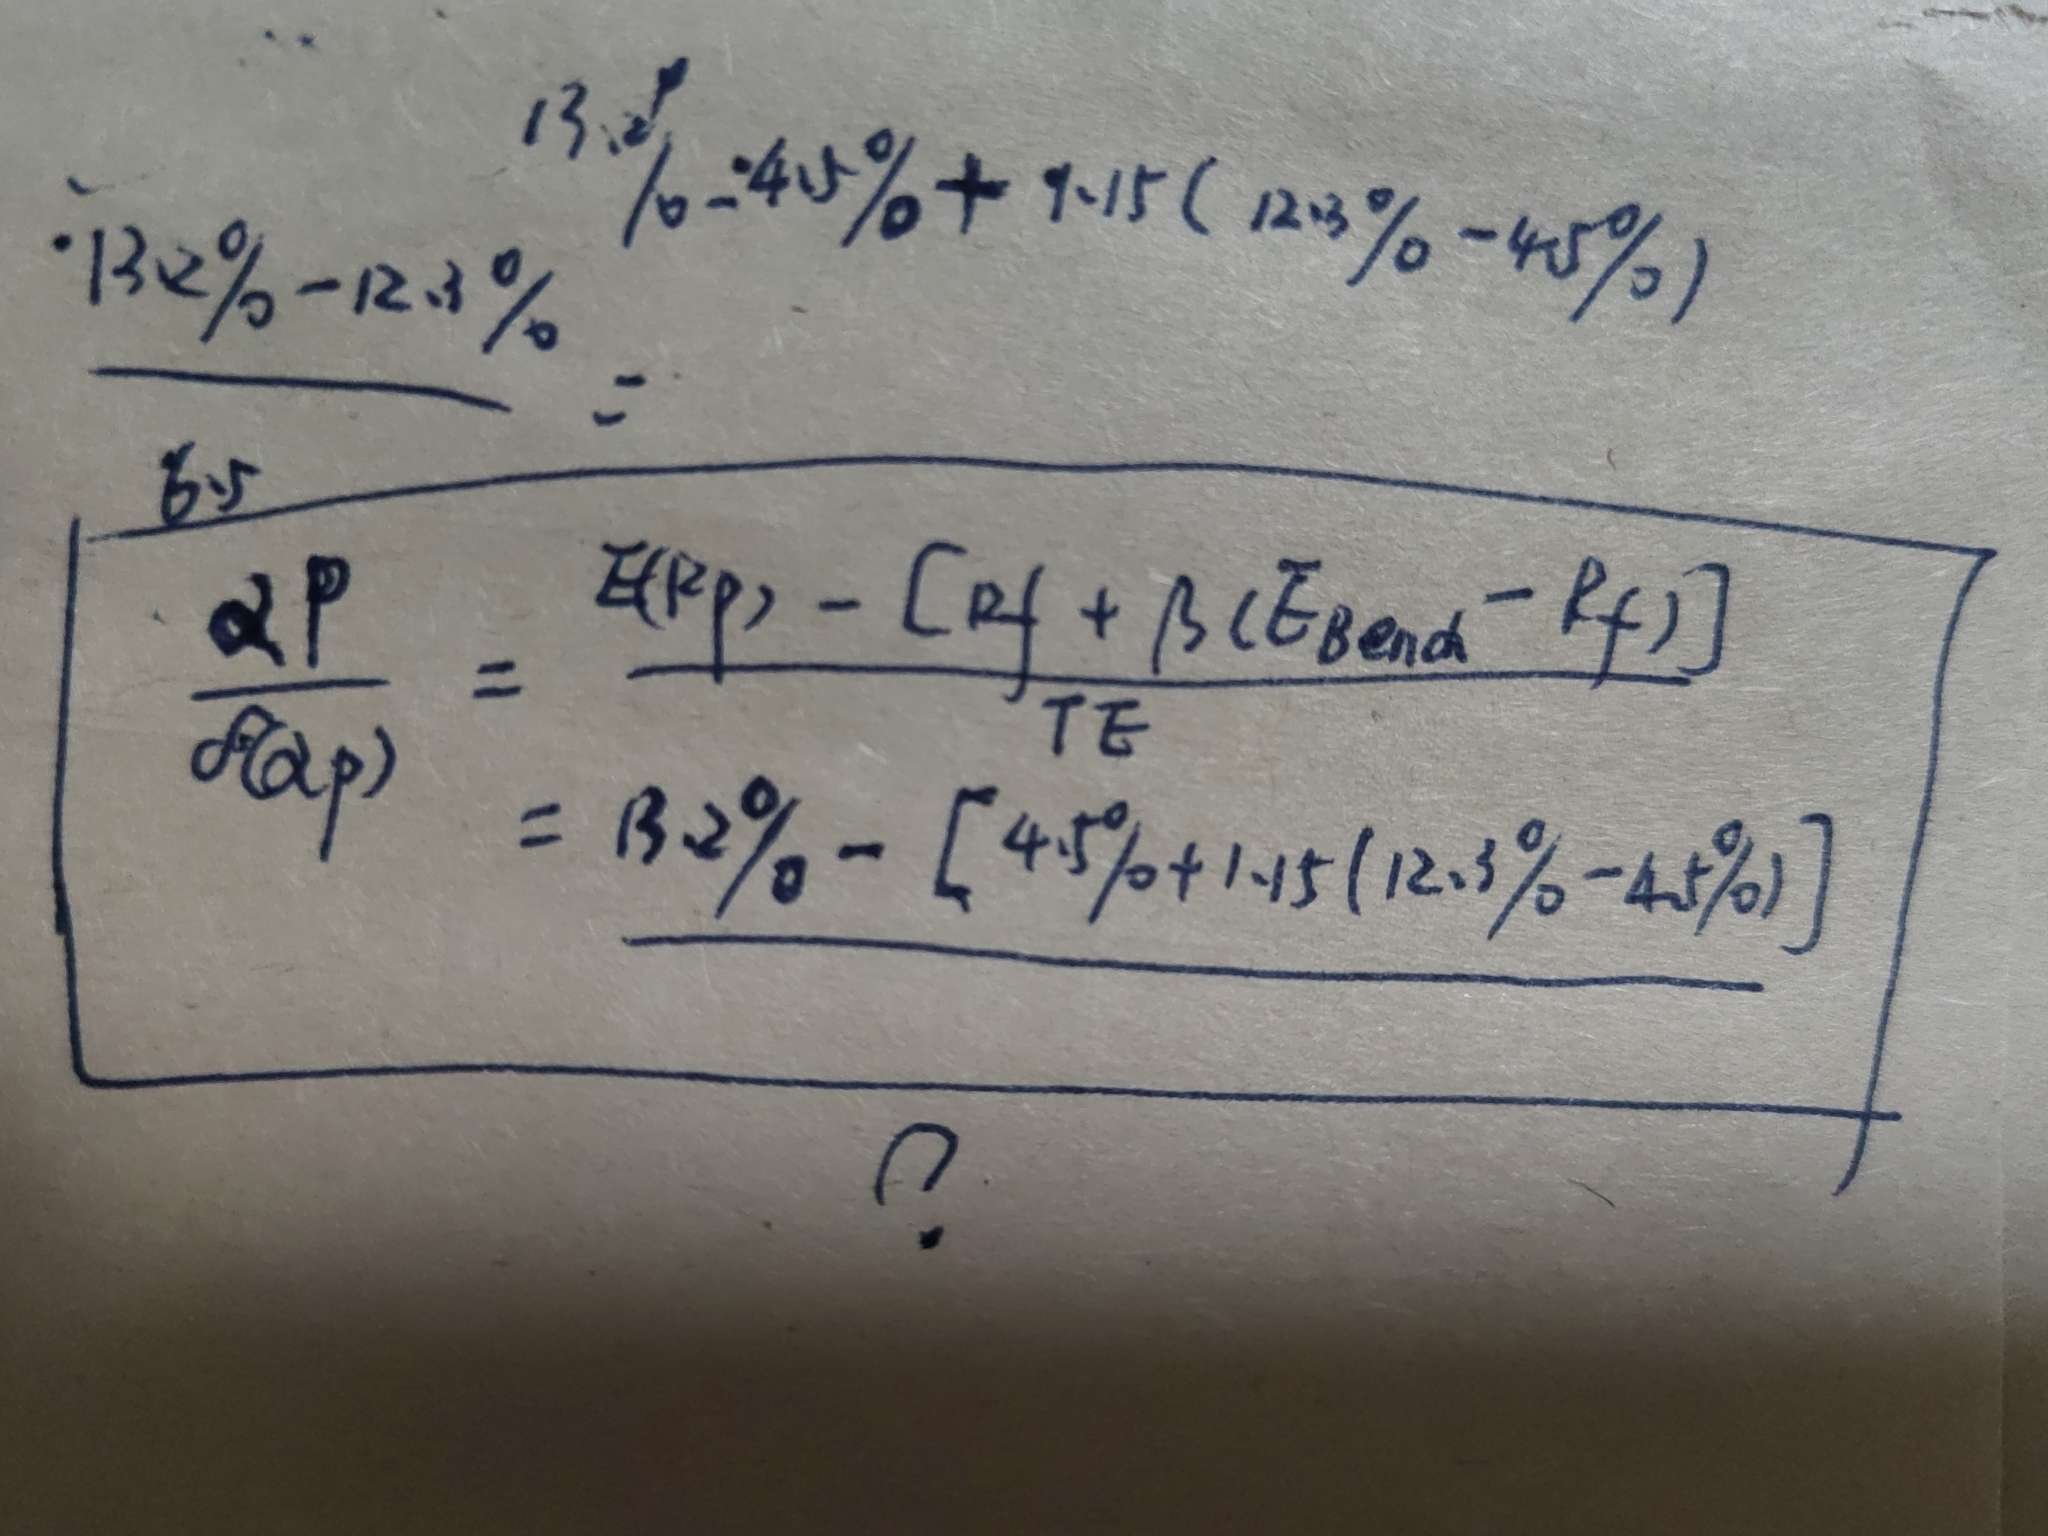 13.2% - 4.5% + 1.15 ( 12.3% - 4.5% )
13.2% - 12.3%
=
6.5
αP = E(Rp) - [ Rf + β ( E Bench - Rf ) ]
σ(αp) TE
= 13.2% - [ 4.5% + 1.15 ( 12.3% - 4.5% ) ]
?